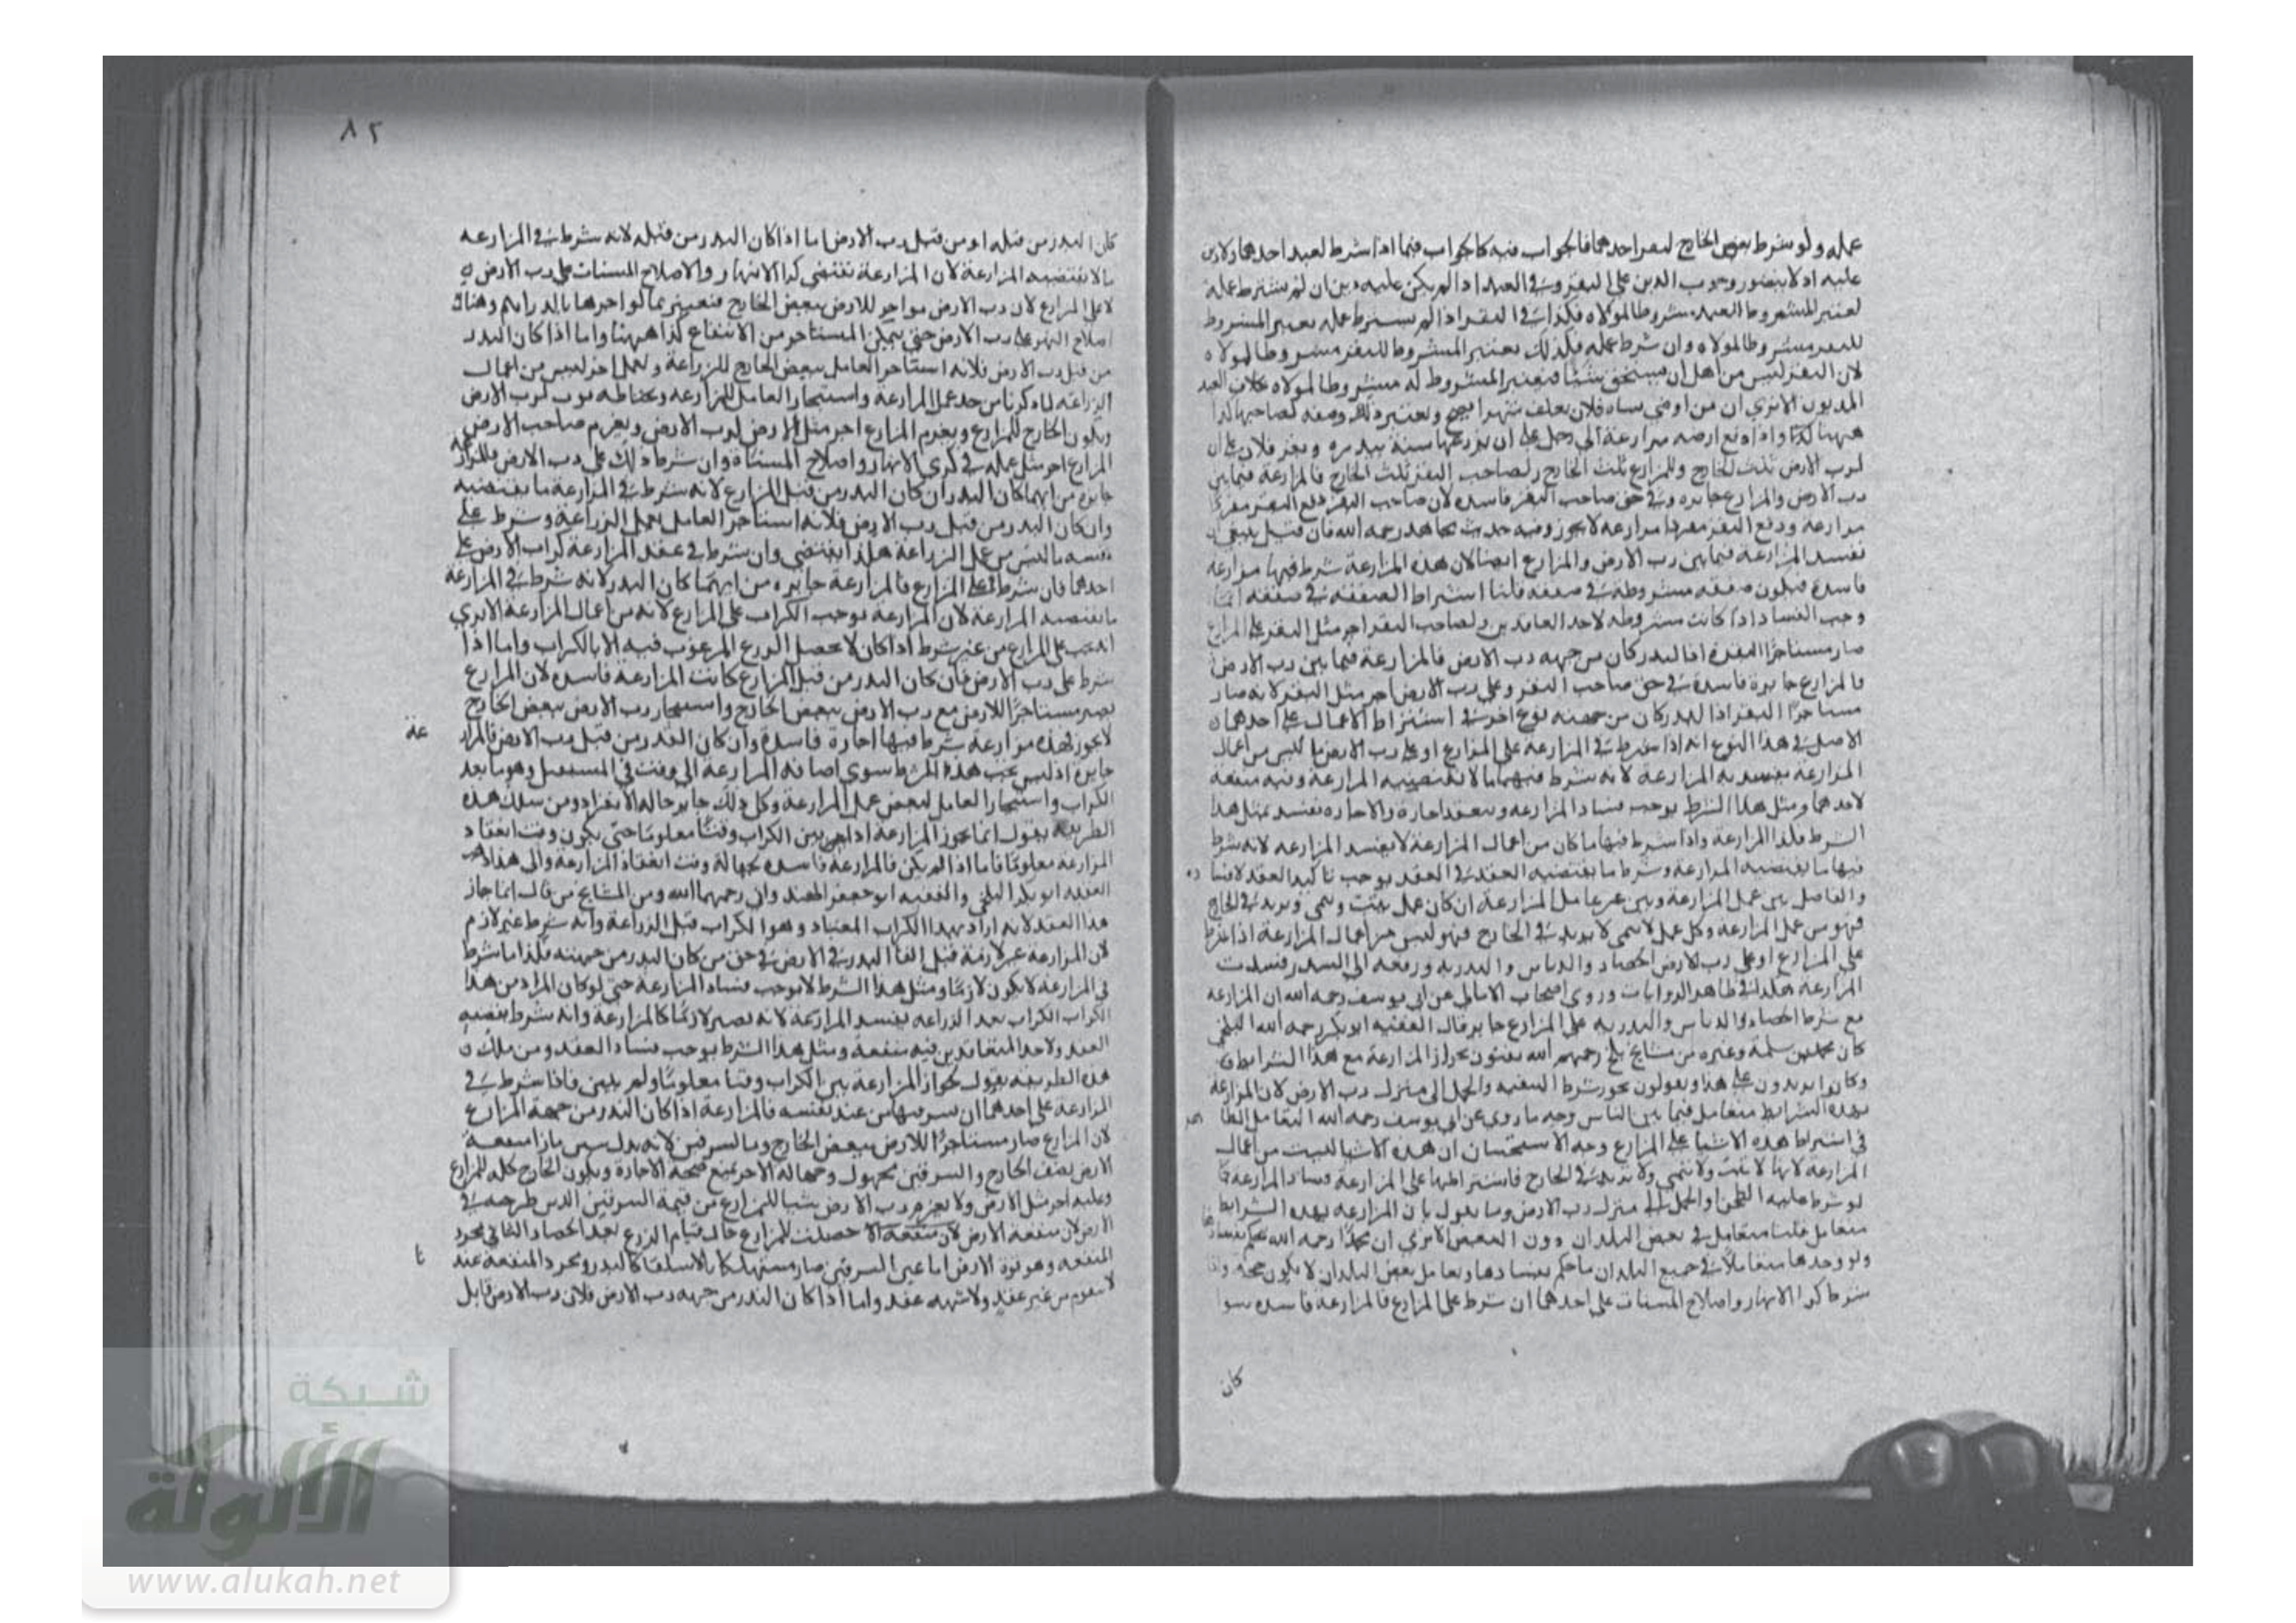 عمله ولو شرط بعض الخارج لبقر احدهما فالجواب فيه كالجواب فيما اذا شرط لعبد احدهما ولا دين
عليه اذ لا يتصور وجوب الدين على البقر وفي العبد اذا لم يكن عليه دين ان لم يشترط عمله
يعتبر المشروط للعبد مشروطا لمولاه فكذا في البقر اذا لم يشترط عمله يعتبر المشروط
للبقر مشروطا لمولاه وان شرط عمله فكذلك يعتبر المشروط للبقر مشروطا لمولاه
لان البقر ليس من اهل ان يستحق شيئا فيعتبر المشروط له مشروطا لمولاه بخلاف العبد
المديون الا ترى ان من اوصى بشاة فلان بعلف شهرا يصح ويعتبر ذلك وصية لصاحبها كذا
ههنا كذا واذا دفع ارضه مزارعة الى رجل على ان يزرعها سنة ببذره وبقر فلان على ان
لرب الارض ثلث الخارج وللمزارع ثلث الخارج ولصاحب البقر ثلث الخارج فالمزارعة فيما بين
رب الارض والمزارع جايزه وفي حق صاحب البقر فاسده لان صاحب البقر دفع البقر
مزارعة ودفع البقر مفردا مزارعة لا يجوز وفيه حديث مجاهد رحمه الله فان قيل ينبغي ان
تفسد المزارعة فيما بين رب الارض والمزارع ايضا لان هذه المزارعة شرط فيها مزارعة
فاسدة فيكون صفقه مشروطة في صفقه قلنا اشتراط الصفقة في صفقة انما
وجب الفساد اذا كانت مشروطه لاحد العاقدين ولصاحب البقر اجر مثل البقر على المزارع
صار مستاجرا البقر اذا البذر كان من جهه رب الارض فالمزارعة فيما بين رب الارض
والمزارع جايزة فاسدة في حق صاحب البقر وعلى رب الارض اجر مثل البقر لانه صار
مستاجرا البقر اذا البذر كان من جهته نوع اخر في اشتراط الاعمال على احدهما
الاصل في هذا النوع انه اذا شرط في المزارعة على المزارع او على رب الارض ما ليس من اعمال
المزارعة يفسد به المزارعة لانه شرط فيها ما لا تقتضيه المزارعة وفيه منفعه
لاحدهما ومثل هذا الشرط يوجب فساد المزارعه وينعقد اجارة والاجاره تفسد بمثل هذا
الشرط فكذا المزارعة واذا شرط فيها ما كان من اعمال المزارعة لا يفسد المزارعه لانه شرط
فيها ما يقتضيه المزارعة وشرط ما يقتضيه العقد في العقد يوجب تاكيد العقد لا فسا ده
والفاصل بين عمل المزارعة وبين غير عامل المزارعة ان كان عمل ينبت وينمي ويزيد في الخارج
فهو من عمل المزارعه وكل عمل لا ينمى لا يزيد في الخارج فهو ليس من اعمال المزارعة اذا شرط
على المزارع او على رب الارض الحصاد والدياس والتذريه ورفعه الى البيدر فسدت
المزارعة هكذا في ظاهر الروايات وروى اصحاب الامالي عن ابي يوسف رحمه الله ان المزارعه
مع شرط الحصاد والدياس والتذريه على المزارع جايز قال الفقيه ابو بكر رحمه الله البلخي
كان محمد بن سلمة وغيره من مشايخ بلخ رحمهم الله يفتون بجواز المزارعة مع هذا الشرايط
وكانوا يزيدون على هذا ويقولون يجوز شرط التنقيه والحمل الى منزل رب الارض لان المزارعة
بهذه الشرايط متعامل فيما بين الناس وجه ما روي عن ابي يوسف رحمه الله التعامل الظا هر
في اشتراط هذه الاشيا على المزارع وجه الاستحسان ان هذه الاشيا ليست من اعمال
المزارعة لانها لا تنبت ولا تنمي ولا تزيد في الخارج فاشتراطها على المزارعة فساد المزارعة كما
لو شرط عليه الطحن والحمل الى منزل رب الارض وما يقول بان المزارعه بهذه الشرايط
متعامل قلنا متعامل في بعض البلدان دون البعض الا ترى ان محمدا رحمه الله حكم بفسادها
ولو وجدها متعاملا في جميع البلدان ما حكم بفسادها وتعامل بعض البلدان لا يكون حجة واذا
شرط كرا الانهار واصلاح المسنات على احدهما ان شرط على المزارع فالمزارعة فاسده سوا
كان
٨٢
كان البذر من قبله او من قبل رب الارض اما اذا كان البذر من قبله لانه شرط في المزارعه
ما لا يقتضيه المزارعة لان المزارعة تقتضي كرا الانهار والاصلاح المسنات على رب الارض
لا على المزارع لان رب الارض مواجر للارض ببعض الخارج فتعتبر بما لو اجرها بالدراهم وهناك
اصلاح النهر على رب الارض حتى يتمكن المستاجر من الانتفاع كذا ههنا واما اذا كان البذر
من قبل رب الارض فلانه استاجر العامل ببعض الخارج للزراعة ولعمل اخر ليس من اعمال
الزراعه لما ذكرنا من حد عمل المزارعة واستيجار العامل للمزارعه وبخياطه ثوب لرب الارض
ويكون الخارج للمزارع ويغرم المزارع اجر مثل الارض لرب الارض ويغرم صاحب الارض
المزارع اجر مثل عمله في كري الانهار واصلاح المسناة وان شرط ذلك على رب الارض فالمزارعة
جايزه من ايهما كان البذر ان كان البذر من قبل المزارع لانه شرط في المزارعة ما يقتضيه
وان كان البذر من قبل رب الارض فلانه استاجر العامل بعمل الزراعة وشرط على
نفسه ما ليس من عمل الزراعة هكذا يقتضي وان شرط في عقد المزارعة كراب الارض على
احدهما فان شرط على المزارع فالمزارعة جايزه من ايهما كان البذر لانه شرط في المزارعة
ما يقتضيه المزارعة لان المزارعة توجب الكراب على المزارع لانه من اعمال المزارعة الا يرى
انه يجب على المزارع من غير شرط اذا كان لا يحصل الزرع المرغوب فيه الا بالكراب واما اذا
شرط على رب الارض فان كان البذر من قبل المزارع كانت المزارعة فاسده لان المزارع
يصير مستاجرا للارض مع رب الارض ببعض الخارج واستيجار رب الارض ببعض الخارج
لا يجوز فهذه مزارعة شرط فيها اجارة فاسدة وان كان البذر من قبل رب الارض فالمزار عة
جايزة اذ ليس يجب هذا الشرط سوى اضافه المزارعة الى وقت في المستقبل وهو ما بعد
الكراب واستيجار العامل لبعض عمل المزارعة وكل ذلك جايز حاله الانفراد ومن سلك هذه
الطريقه يقول انما يجوز المزارعة اذا بين الكراب وقتا معلوما حتى يكون وقت انعقاد
المزارعة معلوما فاما اذا لم يكن فالمزارعة فاسده بجهالة وقت انعقاد المزارعة والى هذا ذهب
الفقيه ابو بكر البلخي والفقيه ابو جعفر الهندواني رحمهما الله ومن المشايخ من قال انما جاز
هذا العقد لانه اراد بهذا الكراب المعتاد وهو الكراب قبل الزراعة وانه شرط غير لازم
لان المزارعة غير لازمة قبل القا البذر في الارض في حق من كان البذر من جهته فكذا ما شرط
في المزارعة لا يكون لازما ومثل هذا الشرط لا يوجب فساد المزارعة حتى لو كان المراد من هذا
الكراب الكراب بعد الزراعه يفسد المزارعة لانه يصير لازما كالمزارعة وانه شرط يقتضيه
العقد ولاحد المتعاقدين فيه منفعة ومثل هذا الشرط يوجب فساد العقد ومن سلك
هذه الطريقه يقول بجواز المزارعة بين الكراب وقتا معلوما ولم يبين فاذا شرط في
المزارعة على احدهما ان يسرقنها من عند نفسه فالمزارعة اذا كان البذر من جهة المزارع
لان المزارع صار مستاجرا للارض ببعض الخارج وبالسرقين لانه بدل بازا منفعة
الارض نصف الخارج والسرقين مجهول وجهالة الاجر يمنع صحة الاجارة ويكون الخارج كله للمزارع
وعليه اجر مثل الارض ولا يغرم رب الارض شيا للمزارع من قيمة السرقين الذي طرحه في
الارض لان منفعه الارض لان منفعة حصلت للمزارع حال قيام الزرع بعد الحصاد الباقي مجرد
المنفعه وهو قوة الارض اما عين السرقين صار مستهلكا بالاستهلاك كالبذر ومجرد المنفعة عند نا
لا يتقوم من غير عقد ولا شبهه عقد واما اذا كان البذر من جهه رب الارض فلان رب الارض قابل
شبكة
الألوكة
www.alukah.net